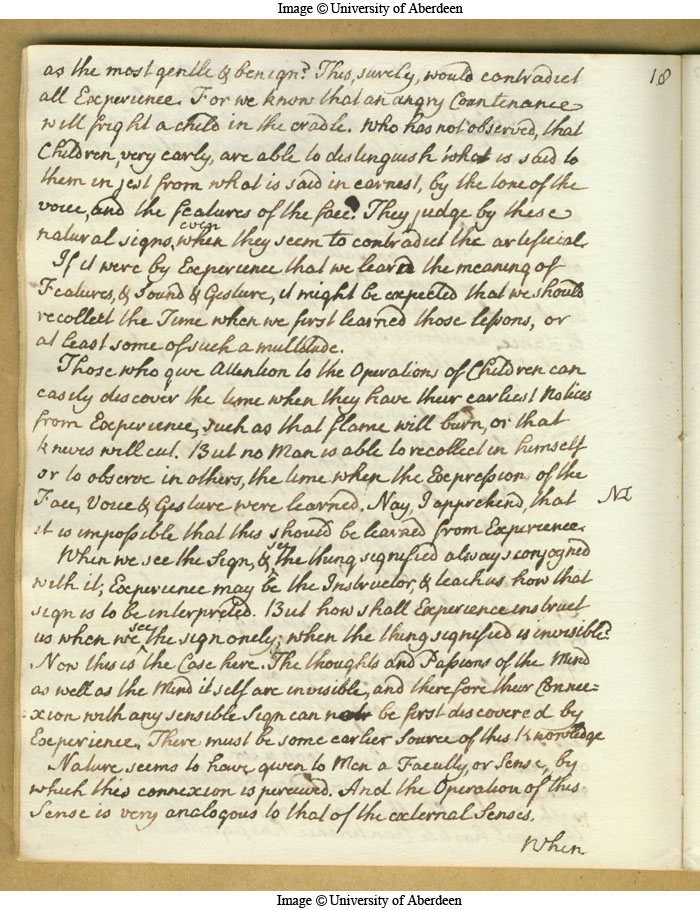 Image © University of Aberdeen
18
as the most gentle & benign? This, surely, would contradict
all Experience. For we know that an angry Countenance
will fright a child in the cradle. Who has not observed, that
Children, very early, are able to distinguish what is said to
them in jest from what is said in earnest, by the tone of the
voice, and the features of the face? They judge by these
natural signs, even when they seem to contradict the artificial.
If it were by Experience that we learn the meaning of
Features, & Sound & Gesture, it might be expected that we should
recollect the Time when we first learned those lessons, or
at least some of such a multitude.
Those who give Attention to the Operations of Children can
easily discover the time when they have their earliest Notices
from Experience, such as that flame will burn, or that
knives will cut. But no Man is able to recollect in himself
or to observe in others, the time when the Expression of the
Face, Voice & Gesture were learned. Nay, I apprehend, that
it is impossible that this should be learned from Experience.
When we see the Sign, & see the thing signified always conjoyned
with it, Experience may be the Instructor, & teach us how that
sign is to be interpreted. But how shall Experience instruct
us when we see the sign onely; when the thing signified is invisible?
Now this is the Case here. The thoughts and Passions of the Mind
as well as the Mind it self are invisible, and therefore their Connec=
=xion with any sensible Sign can not be first discovered by
Experience. There must be some earlier Source of this Knowledge
Nature seems to have given to Men a Faculty, or Sense, by
which this connexion is perceived. And the Operation of this
Sense is very analogous to that of the external Senses.
When
Image © University of Aberdeen